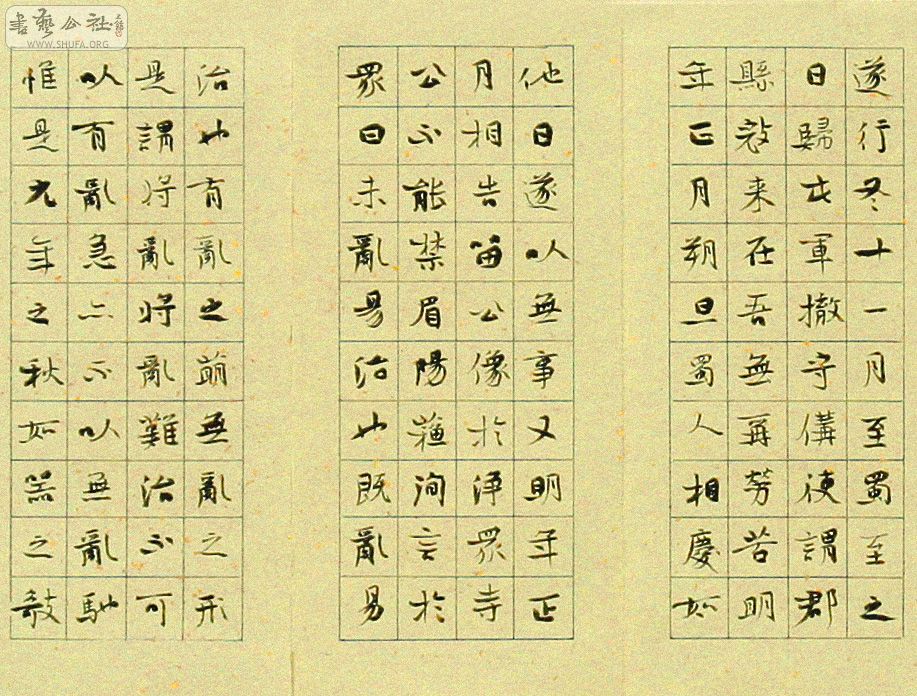 書藝公社
WWW.SHUFA.ORG
遂行冬十一月至蜀至之
日歸屯軍撤守備使謂郡
縣寇来在吾無再劳苦明
年正月朔旦蜀人相慶如
他日遂以無事又明年正
月相告留公像於淨眾寺
公不能禁眉陽蘇洵言於
眾曰未亂易治也既亂易
治也有亂之萌無亂之形
是謂將亂將亂難治不可
以有亂急亦不以無亂馳
惟是元年之秋如器之敧